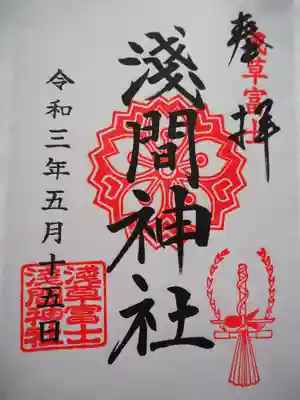 奉拝
浅草富士
淺間神社
令和三年五月十五日
淺草富士
浅间神社